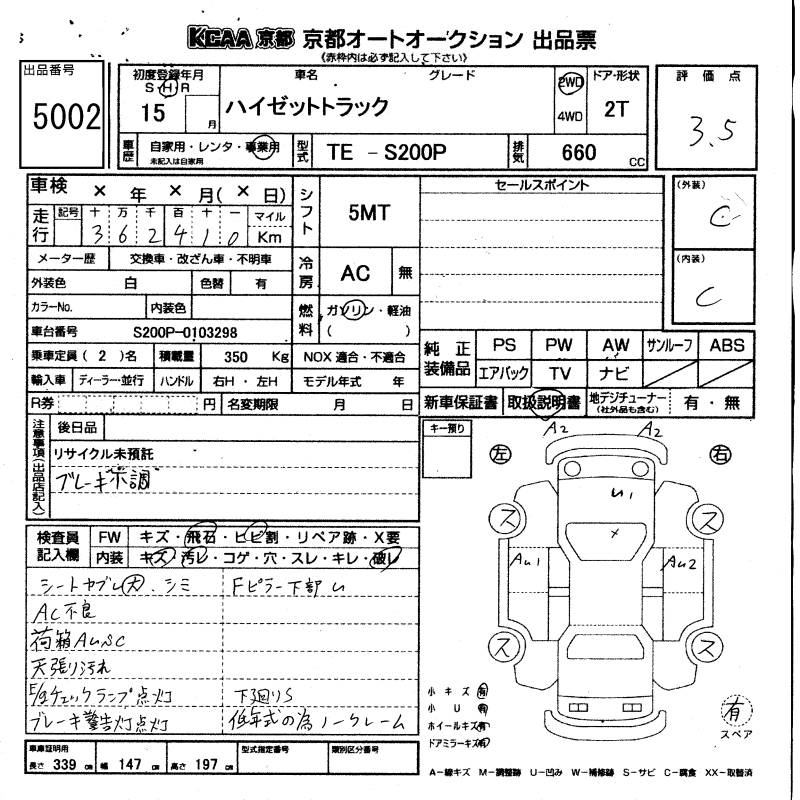 KCAA 京都 京都オートオークション 出品票
《赤枠内は必ず記入して下さい》
出品番号
5002
初度登録年月
S H R
15 月
車名 グレード
ハイゼットトラック
2WD
4WD
ドア・形状
2T
評価点
3.5
車歴
自家用・レンタ・事業用
未記入は自家用
型式
TE - S200P
排気
660 CC
車検 × 年 × 月( × 日)
走行
記号 十 万 千 百 十 一 マイル
3 6 2 4 1 0 Km
シフト
5MT
メーター歴 交換車・改ざん車・不明車
外装色 白 色替 有
冷房
AC 無
カラーNo. 内装色
燃料
ガソリン・軽油
( )
車台番号 S200P-0103298
乗車定員 ( 2 )名 積載量 350 Kg NOX 適合・不適合
輸入車 ディーラー・並行 ハンドル 右H ・ 左H モデル年式 年
R券 円 名変期限 月 日
セールスポイント
(外装)
C
(内装)
C
純正装備品
PS PW AW サンルーフ ABS
エアバック TV ナビ
新車保証書 取扱説明書 地デジチューナー (社外品も含む) 有・無
注意事項(出品店記入)
後日品
リサイクル未預託
ブレーキ不調
キー預り
左
右
A2 A2
U1
×
AU1
AU2
ス ス
ス ス
有
スペア
検査員記入欄
FW キズ・飛石・ヒビ割・リペア跡・X要
内装 キズ・汚レ・コゲ・穴・スレ・キレ・破レ
シートヤブレ大.シミ Fピラー下部U
AC不良
荷箱AUSC
天張り汚れ
E/gチェックランプ点灯 下廻りS
ブレーキ警告灯点灯 低年式の為ノークレーム
小キズ 有
小U 有
ホイールキズ 有
ドアミラーキズ 有
車庫証明用
長さ 339 cm 幅 147 cm 高さ 197 cm
型式指定番号
類別区分番号
A-線キズ M-調整跡 U-凹み W-補修跡 S-サビ C-腐食 XX-取替済